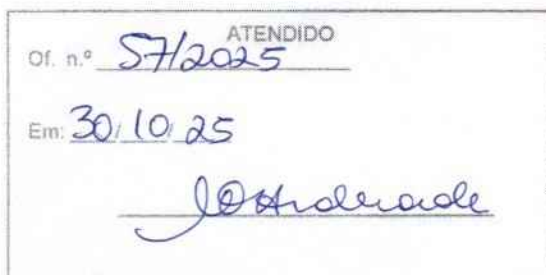 ATENDIDO
Of. n.º 57/2025
Em: 30/10/25